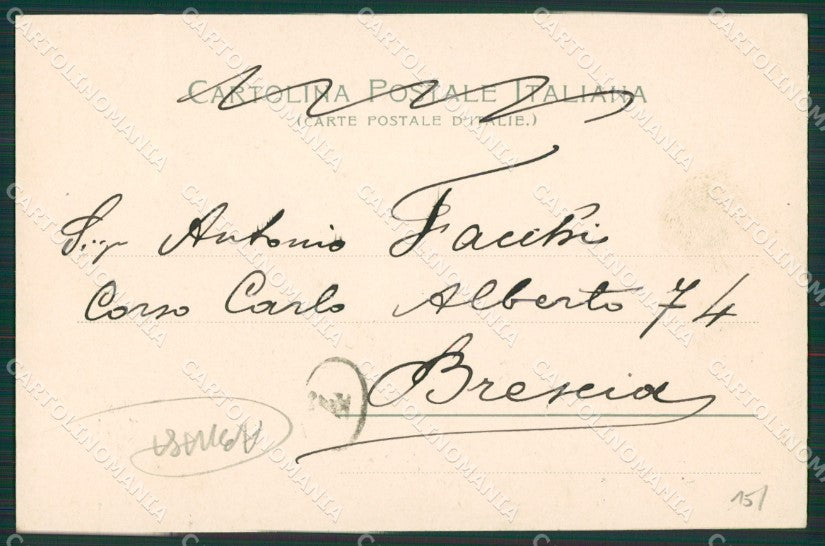 CARTOLINA POSTALE ITALIANA
(CARTE POSTALE D'ITALIE.)
Sig. Antonio Facchi
Corso Carlo Alberto 74
Brescia
15/
CARTOLINOMANIA